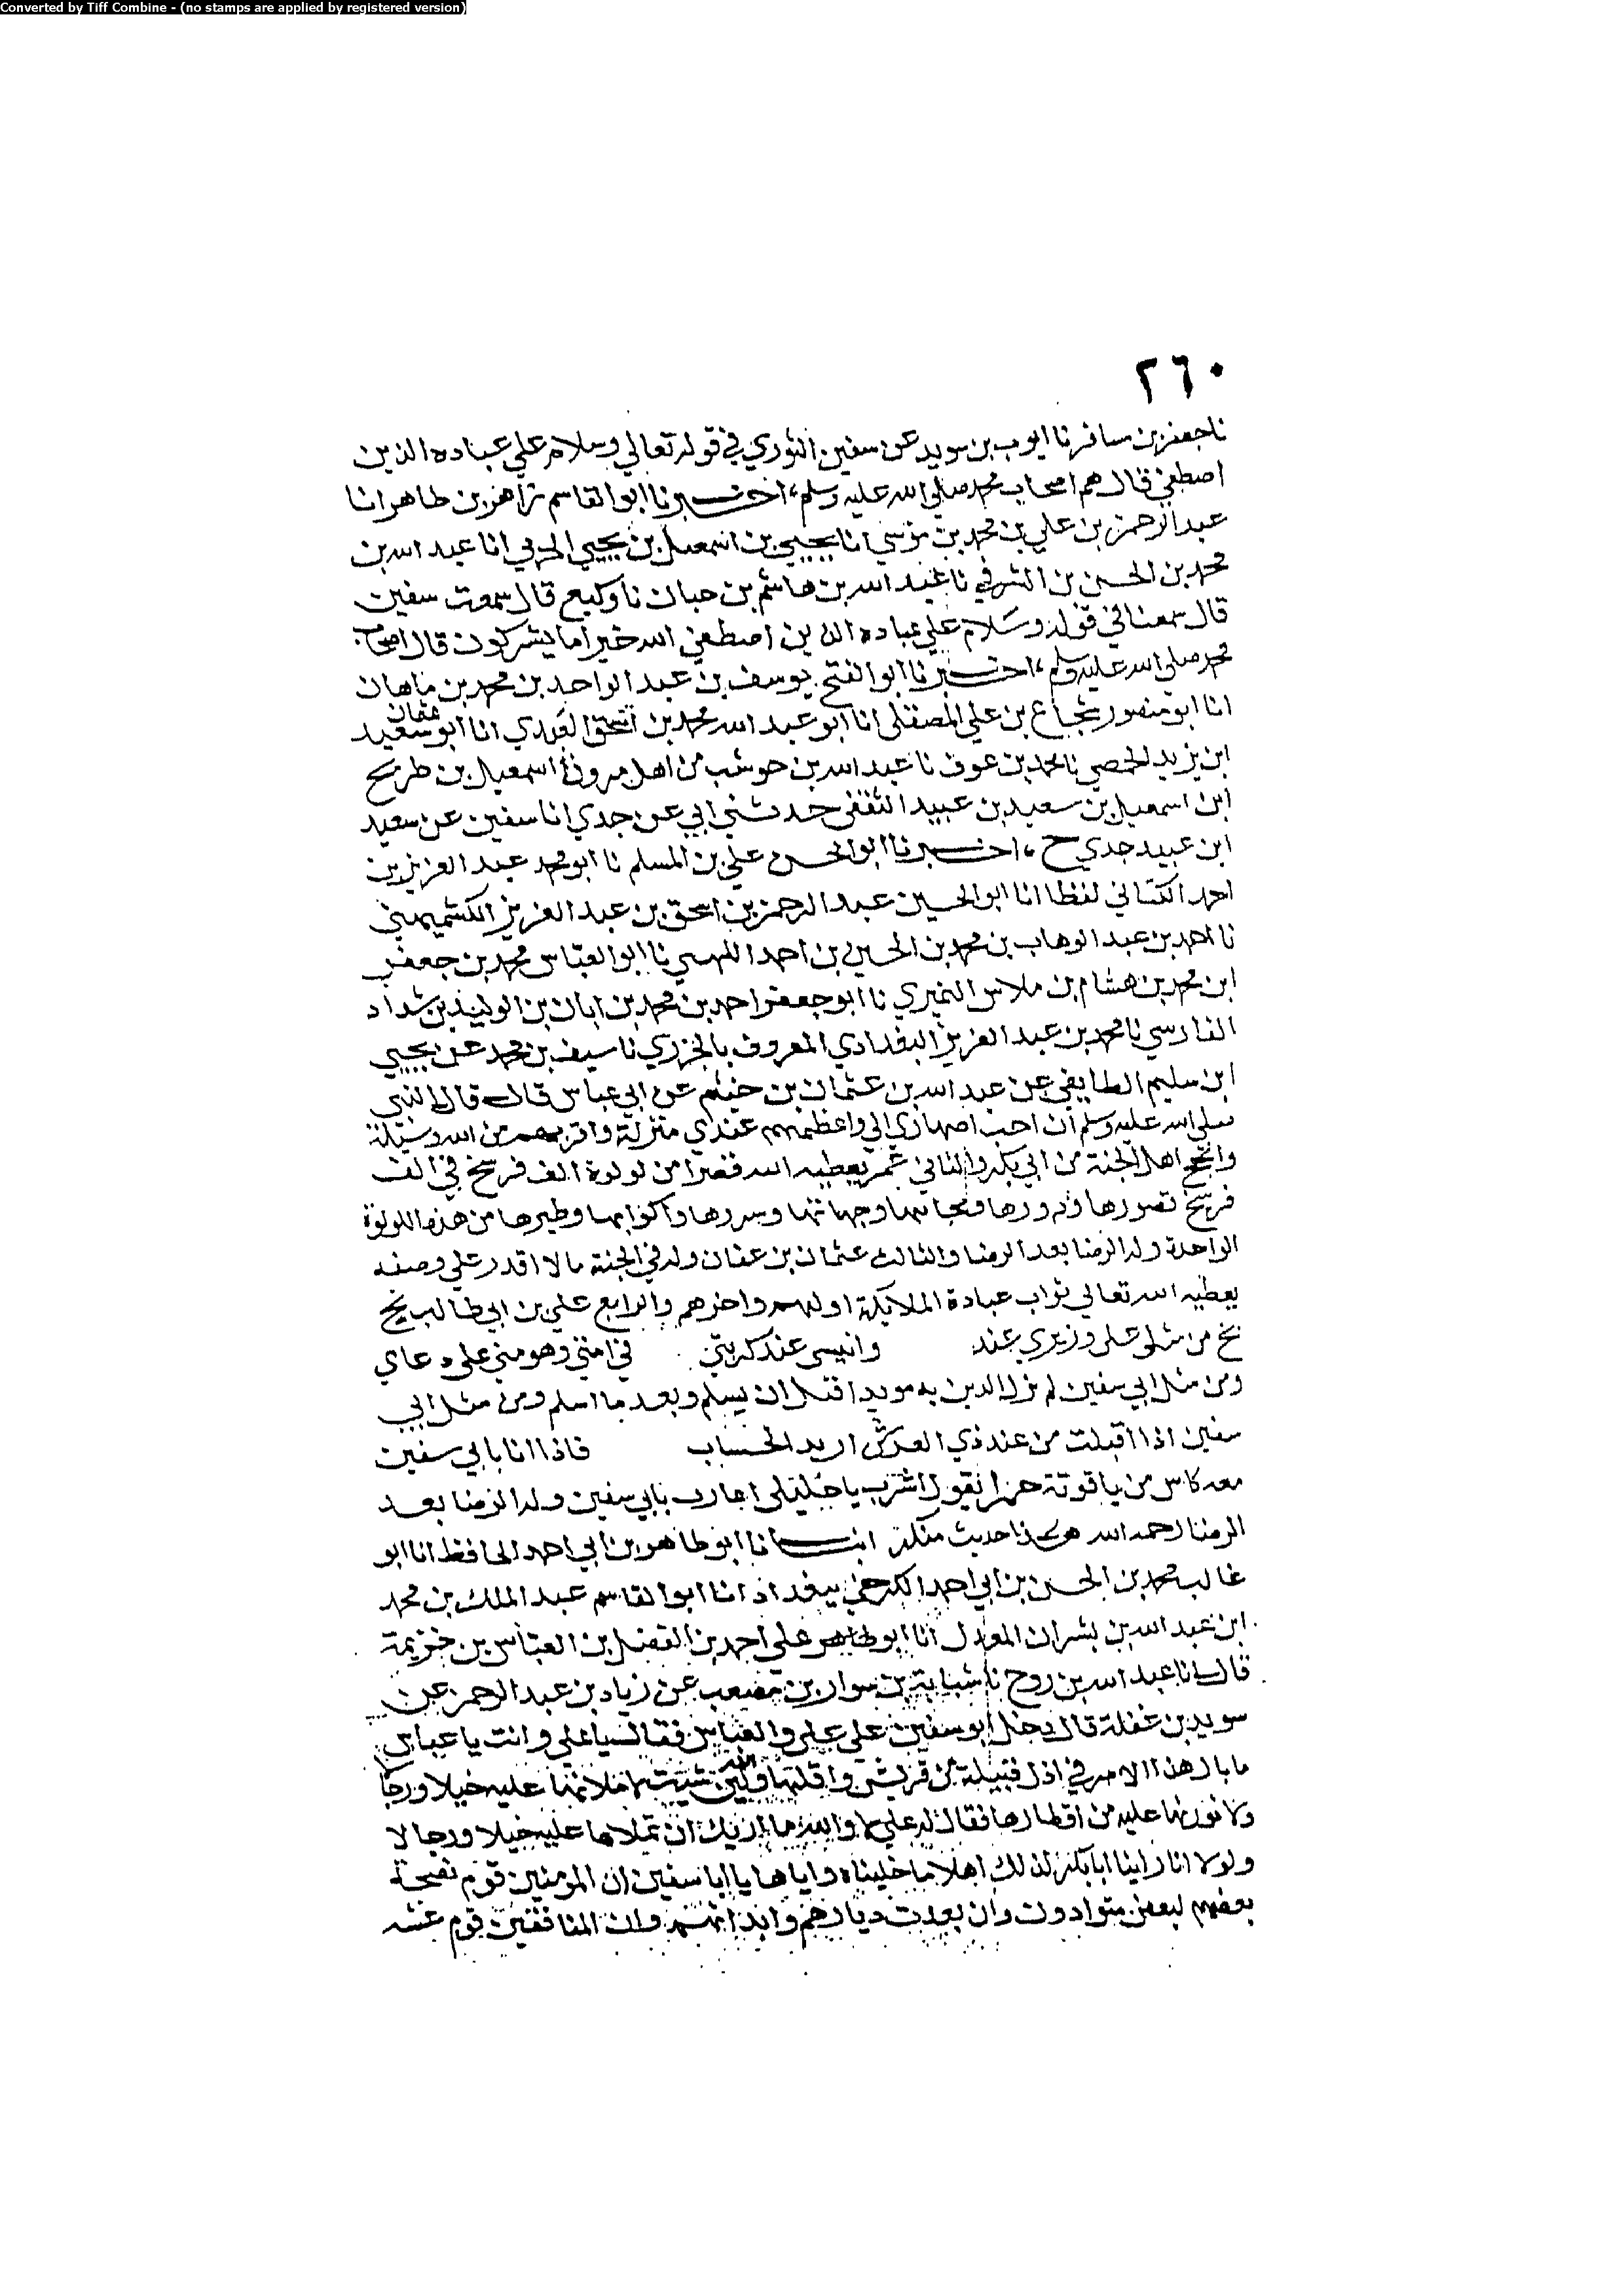 Converted by Tiff Combine - (no stamps are applied by registered version)
٢٦٠
نا جعفر بن مسافر نا ايوب بن سويد عن سفين الثوري في قوله تعالي وسلام علي عباده الذين
اصطفي قال هم اصحاب محمد صلي الله عليه وسلم، اخبرنا ابو القاسم زاهر بن طاهر انا
عبد الرحمن بن علي بن محمد بن موسي انا يحيي بن اسمعيل بن يحيي الحربي انا عبد الله بن
محمد بن الحسن بن الشرقي نا عبد الله بن هاشم بن حبان نا وكيع قال سمعت سفين
قال سمعنا في قوله وسلام علي عباده الذين اصطفي الله خير اما يشركون قال اصحاب
محمد صلي الله عليه وسلم، اخبرنا ابو الفتح يوسف بن عبد الواحد بن محمد بن ماهان
انا ابو منصور شجاع بن علي المصقلي انا ابو عبد الله محمد بن اسحق العبدي انا ابو سعيد عثمان
ابن يزيد الحمصي نا محمد بن عوف نا عبد الله بن حوشب من اهل مرو نا اسمعيل بن طريح
ابن اسمعيل بن سعيد بن عبيد الثقفي حدثني ابي عن جدي انا سفين عن سعيد
ابن عبيد جدي ح، اخبرنا ابو الحسن علي بن المسلم نا ابو محمد عبد العزيز بن
احمد الكتاني لفظا انا ابو الحسين عبد الرحمن بن اسحق بن عبد العزيز الكشميهني
نا احمد بن عبد الوهاب بن محمد بن الحسين بن احمد اللهبي نا ابو العباس محمد بن جعفر
ابن محمد بن هشام بن ملاس النميري نا ابو جعفر احمد بن محمد بن ابان بن الوليد بن شداد
الفارسي نا محمد بن عبد العزيز البغدادي المعروف بالجزري نا سيف بن محمد عن يحيي
ابن سليم الطايفي عن عبد الله بن عثمان بن خيثم عن ابي عباس قال قال النبي
صلي الله عليه وسلم ان احب اصهاري الي واعظمهم عندي منزلة واقربهم من الله وسيلة
وانجح اهل الجنة من ابي بكر والثاني عمر يعطيه الله قصرا من لولوة الف فرسخ في الف
فرسخ قصورها ودورها وجهاتها وسررها واكوابها وطيرها من هذه اللولوة
الواحدة وله الرضا بعد الرضا والثالث عثمان بن عفان وله في الجنة ما لا اقدر علي وصفه
يعطيه الله تعالي ثواب عبادة الملايكة اولهم واخرهم والرابع علي بن ابي طالب بخ
بخ من مثل علي وزيري عند وانيسي عند كربتي في امتي وهو مني علي دعاي
ومن مثل ابي سفين لم يزل الدين به مويدا قبل ان يسلم وبعد ما اسلم ومن مثل ابي
سفين اذا اقبلت من عند ذي العرش اريد الحساب فاذا انا بابي سفين
معه كاس من ياقوتة حمرا يقول اشرب يا خليلي اعارب بابي سفين وله الرضا بعد
الرضا رحمه الله هذا حديث منكر انبانا ابو طاهر بن ابي احمد الحافظ انا ابو
غالب محمد بن الحسن بن ابي احمد الكرخي ببغداد انا ابو القاسم عبد الملك بن محمد
ابن عبد الله بن بشران المعدل انا ابو علي احمد بن الفضل بن العباس بن خزيمة
قال انا عبد الله بن روح نا شبابة بن سوار بن مصعب عن زياد بن عبد الرحمن عن
سويد بن غفلة قال دخل ابو سفين علي علي والعباس فقال يا علي وانت يا عباس
ما بال هذا الامر في اذل قبيلة من قريش واقلها والله لين شيت لاملانها عليه خيلا ورجلا
ولاثورنها عليه من اقطارها فقال له علي لا والله ما اريدك ان تملاها عليه خيلا ورجالا
ولولا انا راينا ابا بكر لذلك اهلا ما خليناه واياها يا ابا سفين ان المومنين قوم نصحة
بعضهم لبعض متوادون وان بعدت ديارهم وابدانهم وان المنافقين قوم غششه